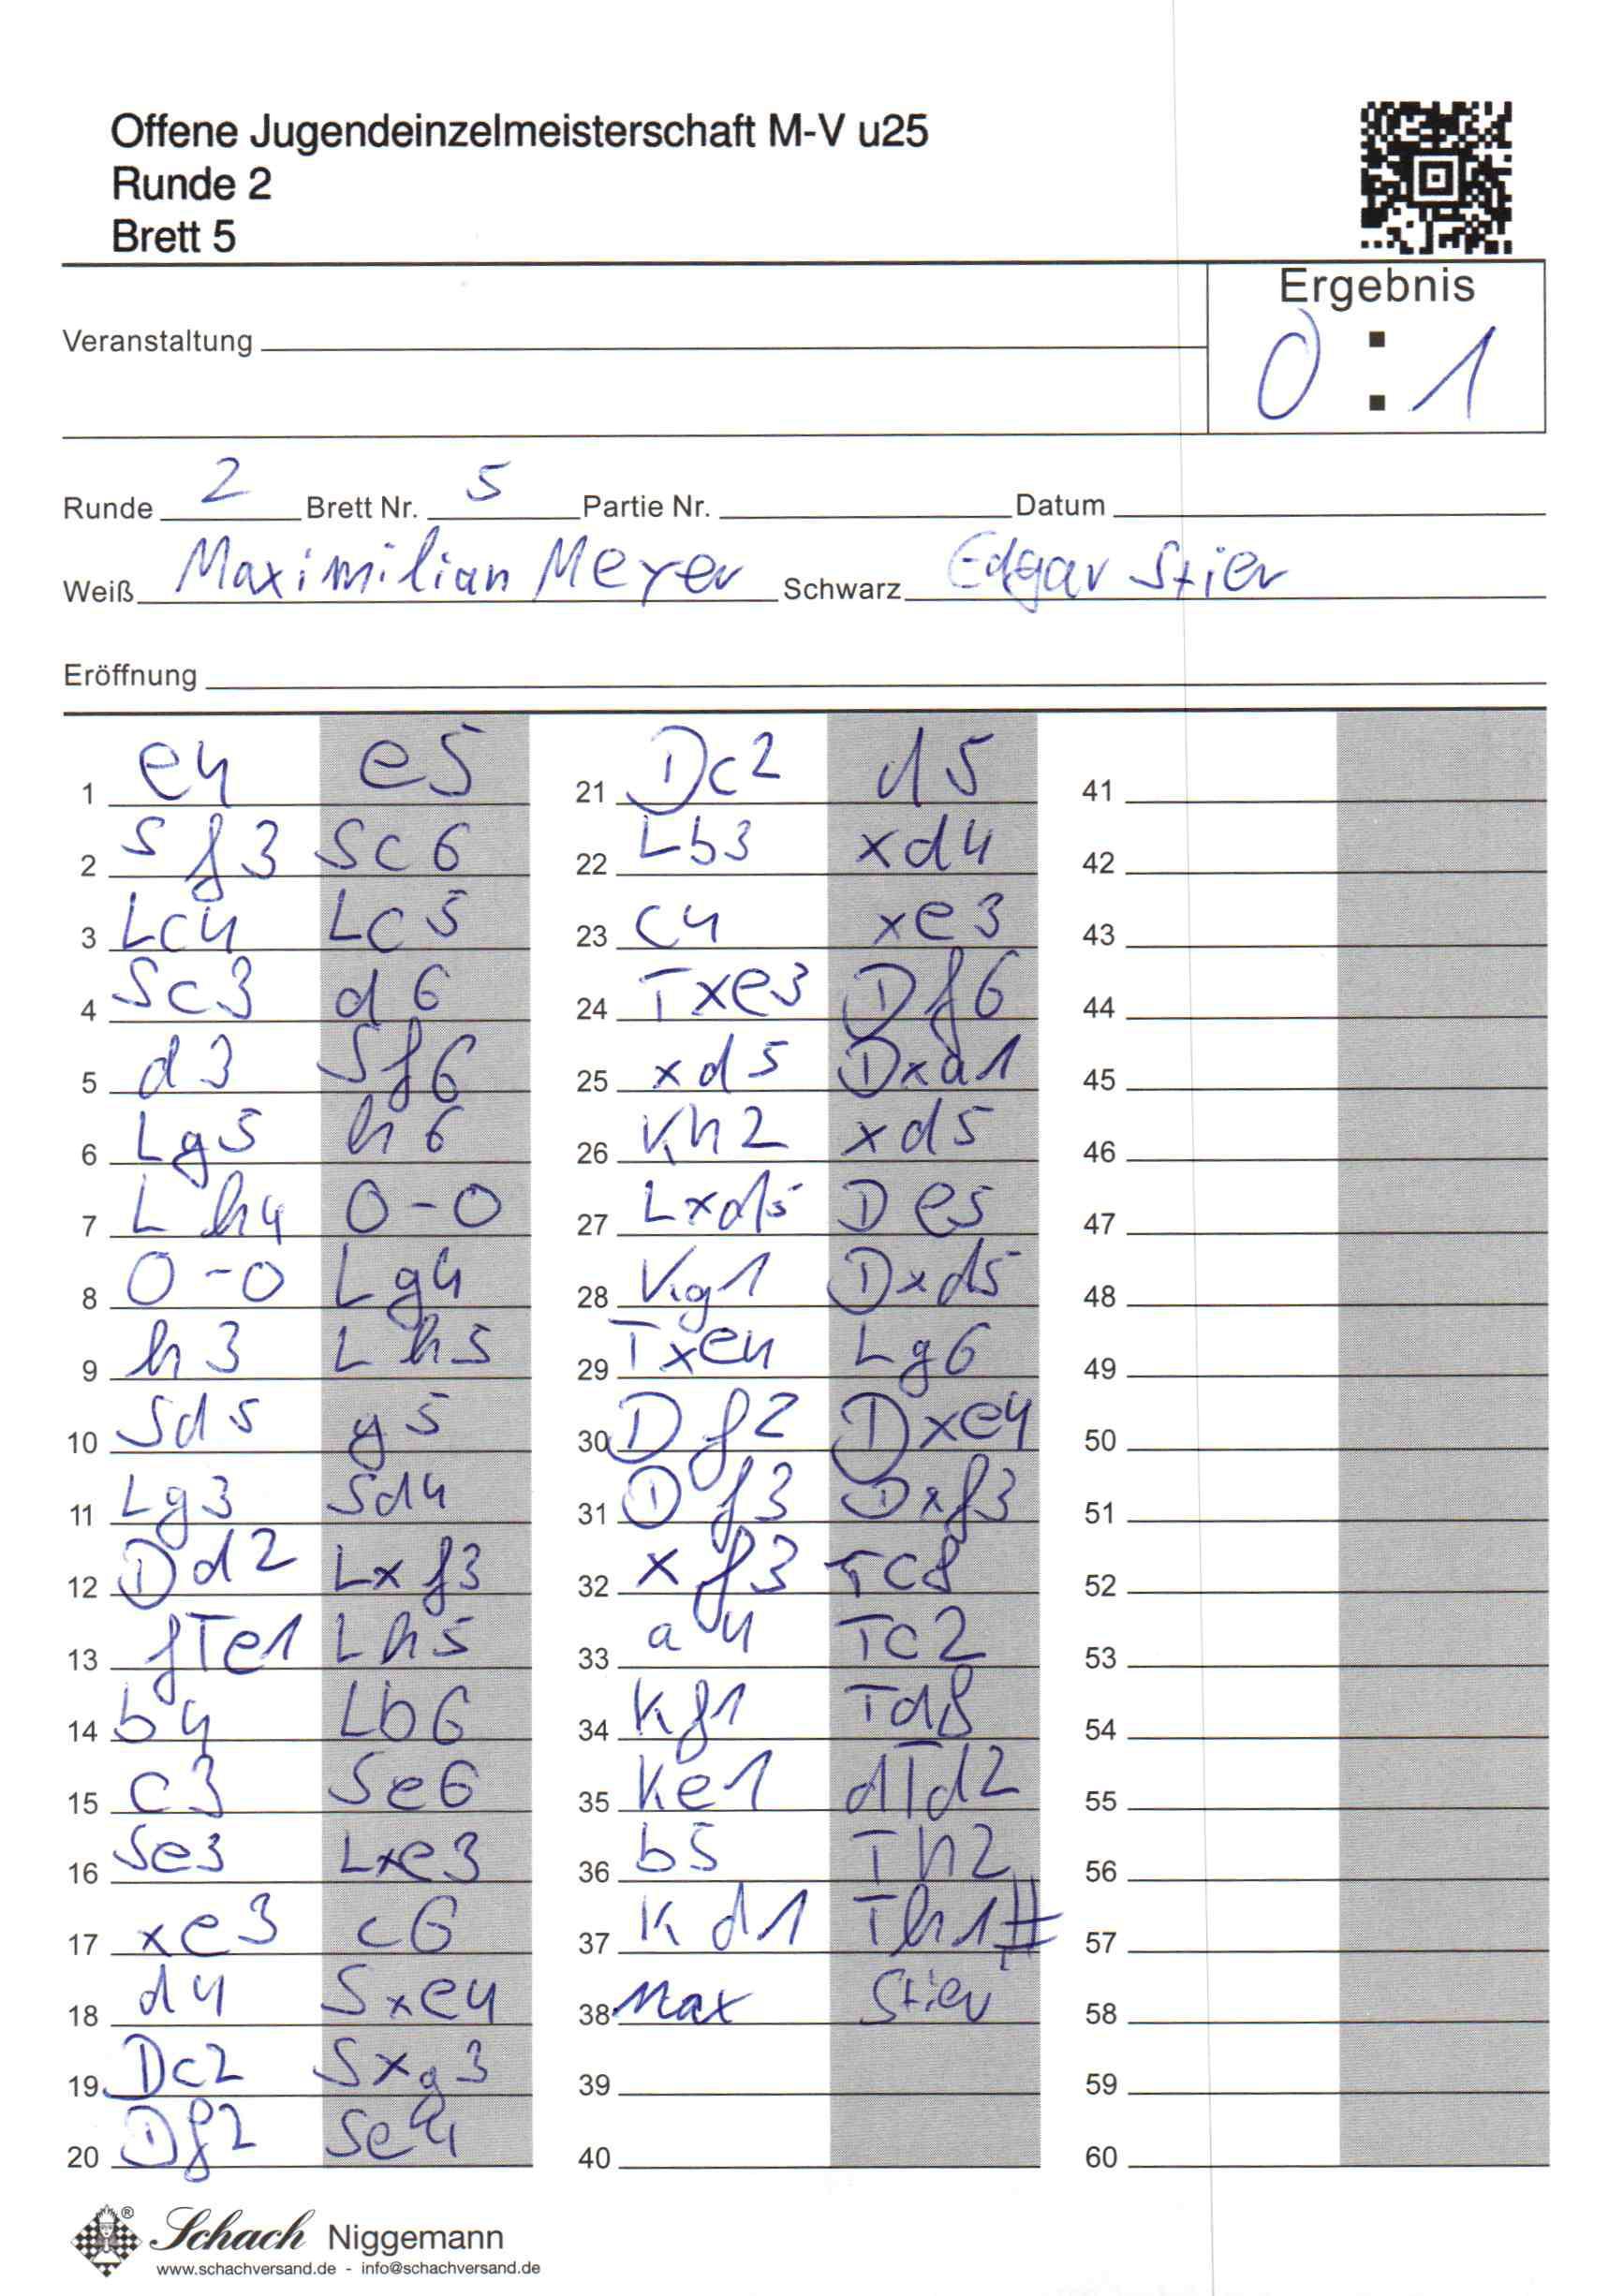 Offene Jugendeinzelmeisterschaft M-V u25
Runde 2
Brett 5
Ergebnis
0 : 1
Veranstaltung
Runde 2 Brett Nr. 5 Partie Nr. Datum
Weiß Maximilian Meyer Schwarz Edgar Stier
Eröffnung
1 e4 e5
2 Sf3 Sc6
3 Lc4 Lc5
4 Sc3 d6
5 d3 Sf6
6 Lg5 h6
7 Lh4 0-0
8 0-0 Lg4
9 h3 Lh5
10 Sd5 g5
11 Lg3 Sd4
12 Dd2 Lxf3
13 fTe1 Lh5
14 b4 Lb6
15 c3 Se6
16 Se3 Lxe3
17 xe3 c6
18 d4 Sxe4
19 Dc2 Sxg3
20 Df2 Se4
21 Dc2 d5
22 Lb3 xd4
23 c4 xe3
24 Txe3 Df6
25 xd5 Dxa1
26 Kh2 xd5
27 Lxd5 De5
28 Kg1 Dxd5
29 Txe4 Lg6
30 Df2 Dxe4
31 Df3 Dxf3
32 xf3 Tc8
33 a4 Tc2
34 Kf1 Td8
35 Ke1 dTd2
36 b5 Th2
37 Kd1 Th1#
38 Max Stier
39
40
41
42
43
44
45
46
47
48
49
50
51
52
53
54
55
56
57
58
59
60
Schach Niggemann
www.schachversand.de - info@schachversand.de